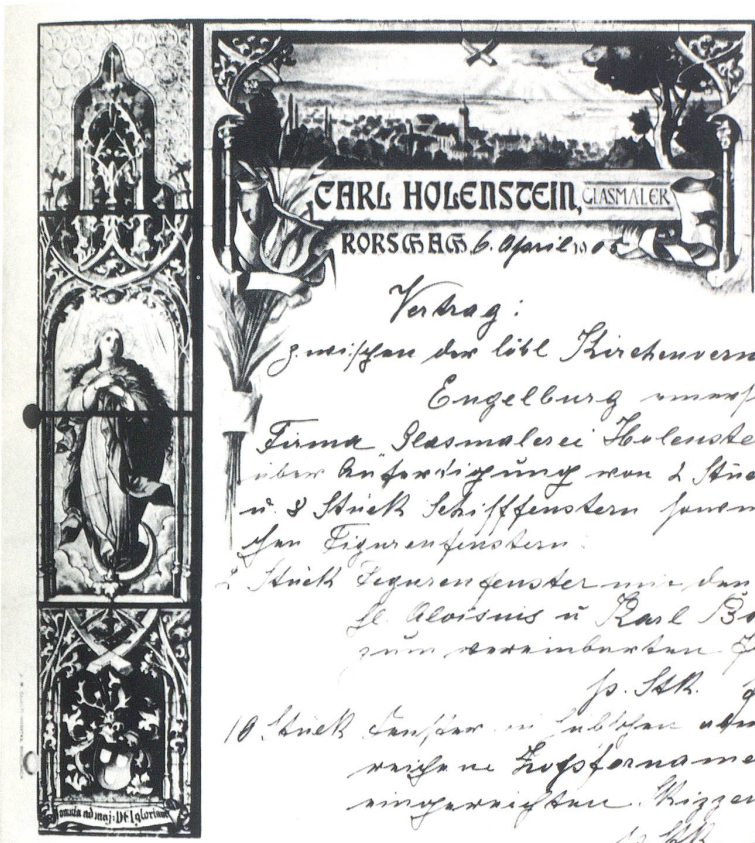 CARL HOLENSTEIN, GLASMALER
RORSCHACH, 6. April 1905
Vertrag:
zwischen der löbl Kirchenverw
Engelburg einers
Firma Glasmalerei Holenste
über Anfertigung von 2 Stüc
u. 8 Stück Schifffenstern sowie
chen Figurenfenstern:
2 Stück Figurenfenster mit den
hl. Aloisius u Karl Bo
zum vereinbarten
p. Stk.
10 Stück Fenster in
reichene Zopfornamen
eingereichten Skizzen
p Stk
omnia ad maj: DEI gloriam